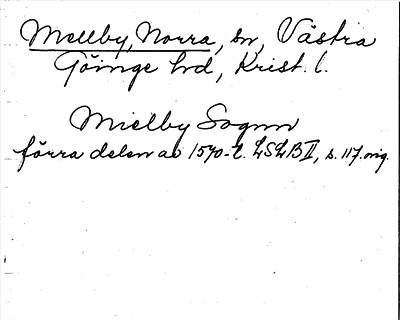 Mellby, Norra, sn, Västra
Göinge hrd, Krist. l.
Mielby Sognn
förra delen av 1570-t. LSLB II, s. 117. orig.